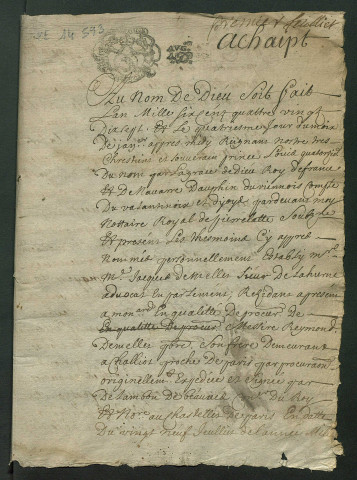 premier feulliet
achaipt
Au Nom De Dieu Soit fait
Lan Mille Six cent quattre vingt
Dix sept Et Le quatriesme Jour du mois
de Janer appres midy Reignant nostre tres
Chrestien et souverain prince Louis quatorze
du nom par la grace de dieu Roy de france
Et De Navarre Dauphin du viennois Comte
Du valantinois et dyois pardevant moy
Nottaire Royal de pierrelatte Soubzne
Et presént Les thesmoins Cy appres
Nommés personnellement Estably mre
Mr Jacques de vielles Sieur de
advocat En parlement, Residant a present
a En quallité de procur de
En quallité De procur Messire Reymond
Devielles Son frere Demeurant
a challiot proche de paris par procuration
originellemt Expediee et signee par
de du Roy
Et Nore au Chastellet de paris En datte
Du vingt neuf Jeullier de lannee Mil